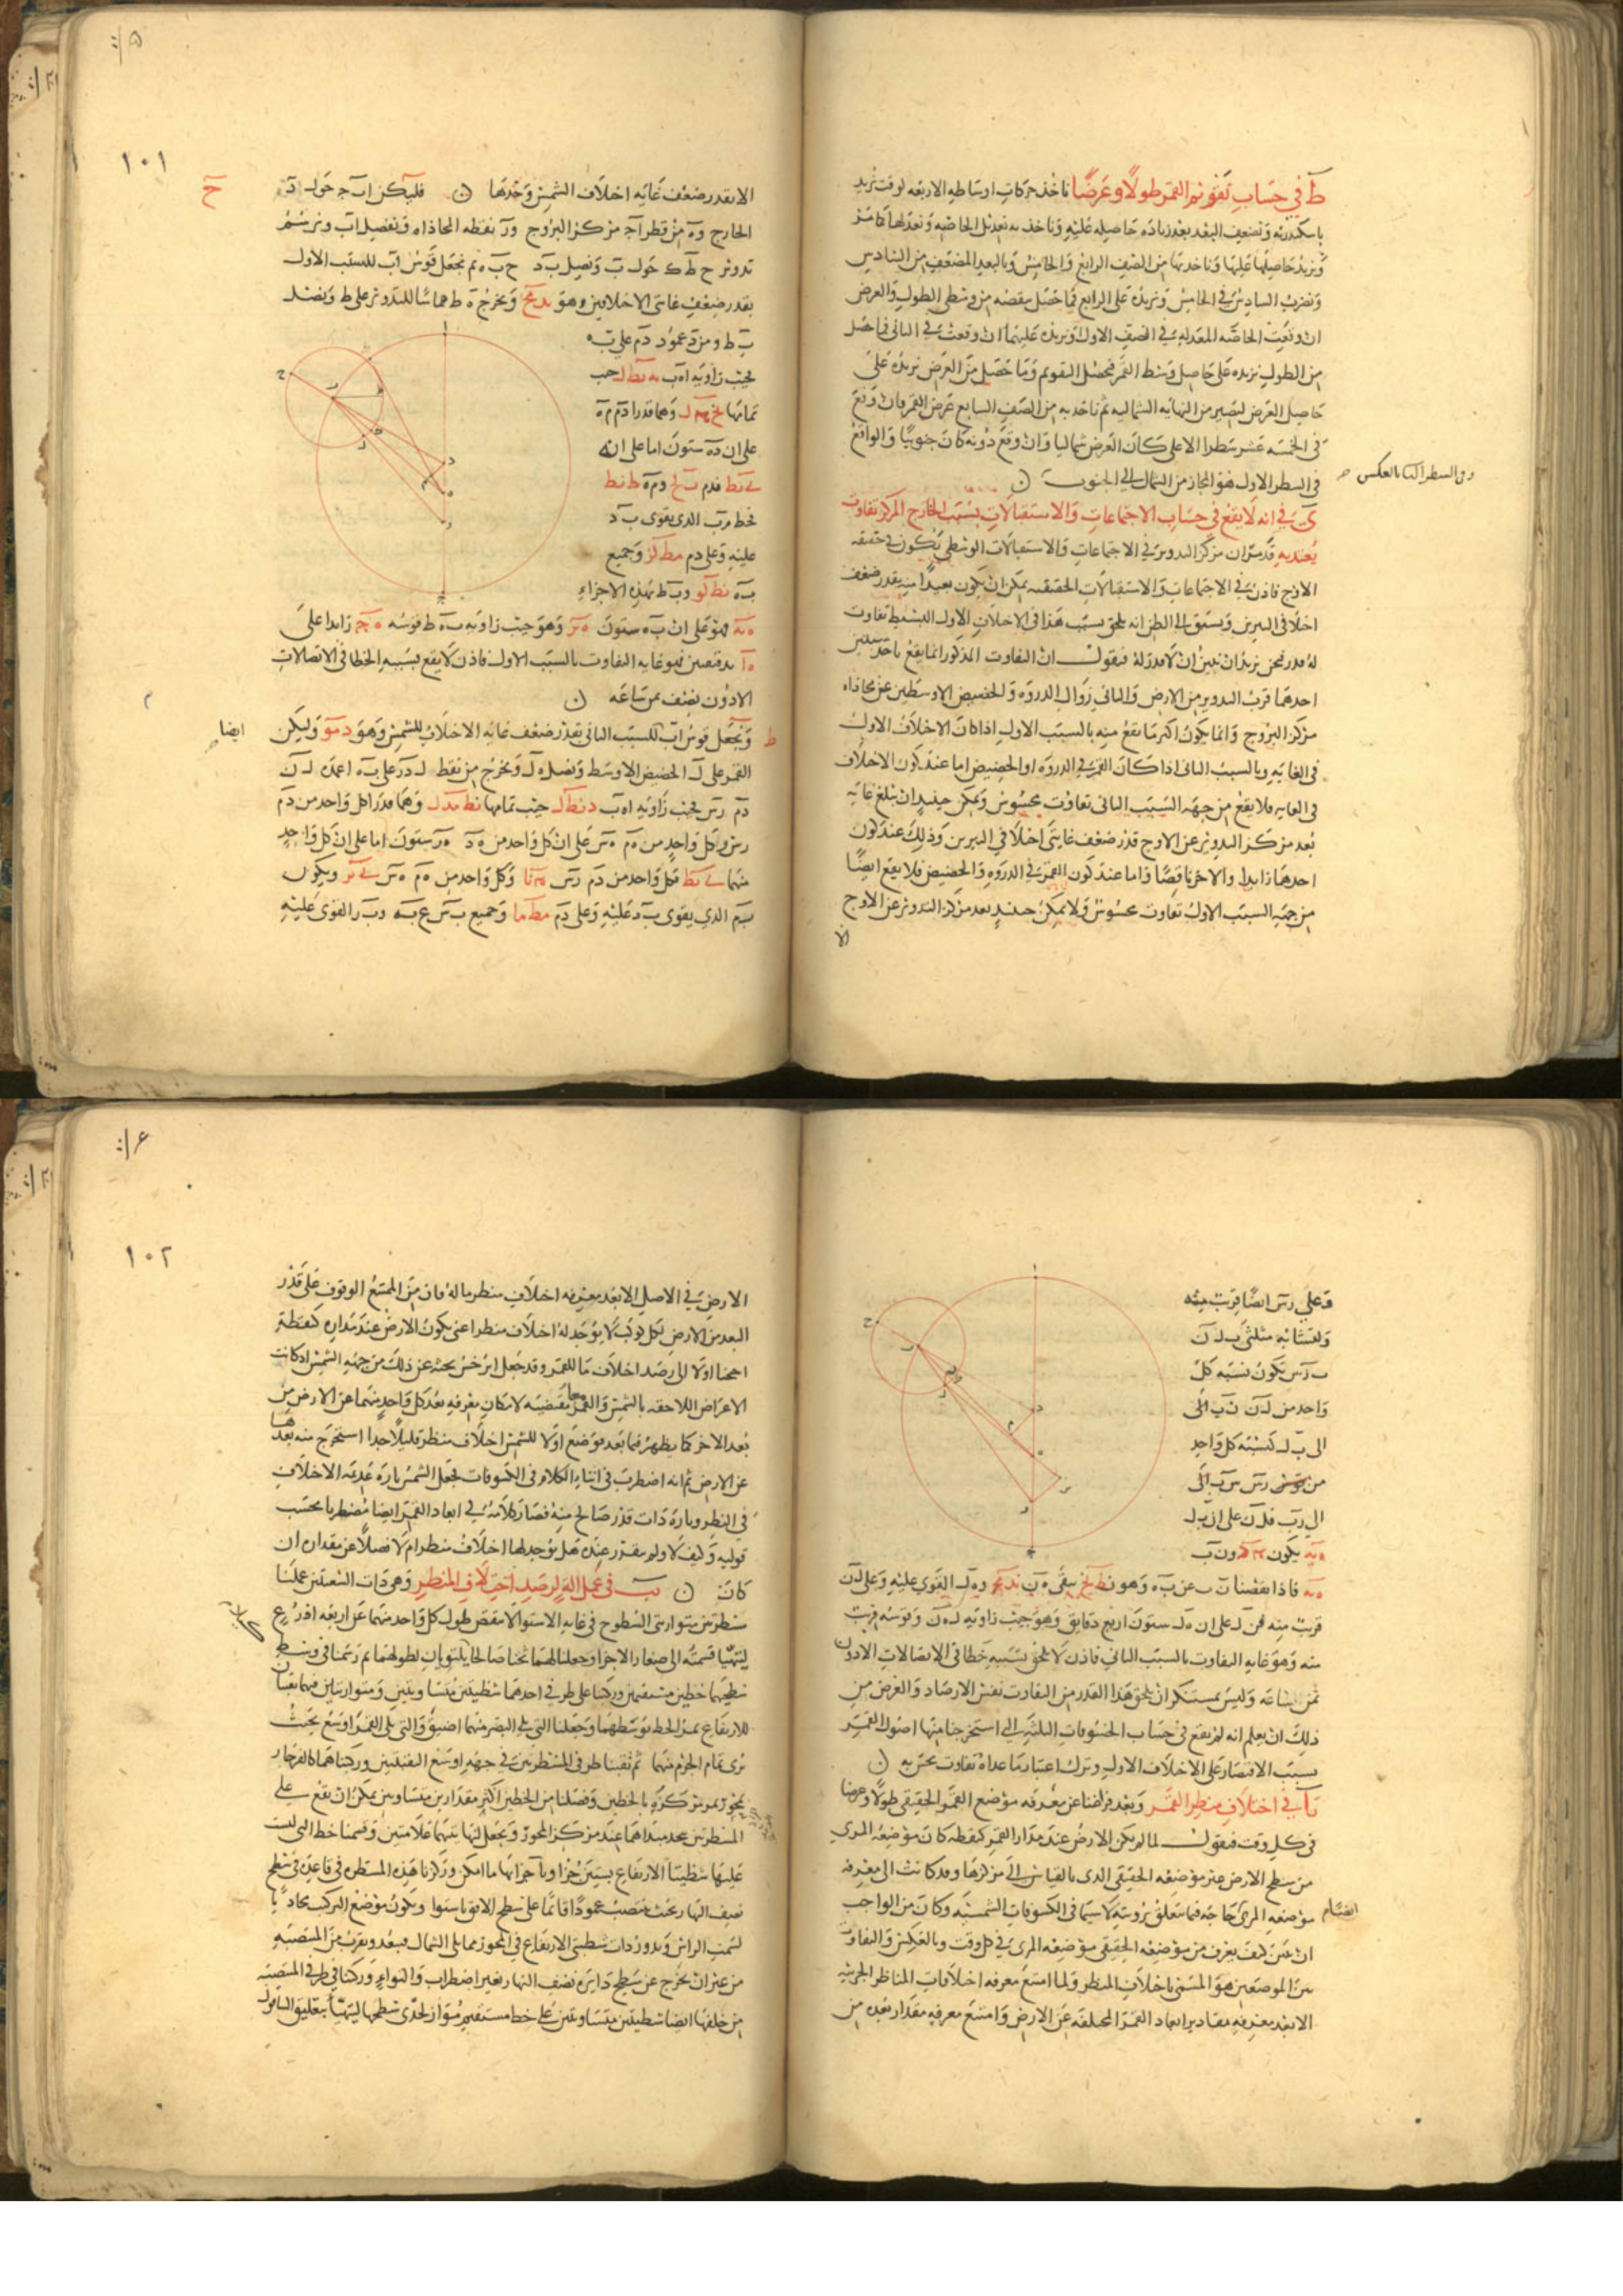 ط في حساب تقويم القمر طولا وعرضا ناخذ حركات اوساطه الاربعه لوقت نريد
باسكندريه ونضعف البعد بعد زياده حاصله عليه وناخذ به تعديل الخاصه ونعدلها كما مر
ونزيد حاصلها عليها وناخذ بها من الصف الرابع والخامس وبالبعد المضعف من السادس
ونضرب السادس في الخامس ونزيده على الرابع فما حصل ننقصه من وسطى الطول والعرض
ان وقعت الخاصه المعدله في الصف الاول ونزيده عليهما ان وقعت في الثاني فما حصل
من الطول نزيده على حاصل وسط القمر فيحصل التقويم وما حصل من العرض نزيده على
حاصل العرض ليصير من النهايه الشماليه ثم ناخذ به من الصف السابع عرض القمر فان وقع
في الخمسه عشر سطرا الاعلى كان العرض شماليا وان وقع دونه كان جنوبيا والواقع
في السطر الاول فهو المجاز من الشمال الى الجنوب
وفي السطر الثاني بالعكس
ى في انه لا يقع في حساب الاجتماعات والاستقبالات بسبب الخارج المركز تفاوت
يعتد به قد مر ان مركز التدوير في الاجتماعات والاستقبالات الوسطى يكون في حقيقه
الاوج فاذن في الاجتماعات والاستقبالات الحقيقيه يمكن ان يكون بعيدا منه بقدر ضعف
اختلافي النيرين ويسبق الى الظن انه يلحق بسبب هذا في الاختلاف الاول البسيط تفاوت
له قدر فنحن نريد ان نبين ان لا قدر له فنقول ان التفاوت المذكور انما يقع باحد سببين
احدهما قرب التدوير من الارض والثاني زوال الذروه والحضيض الاوسطين عن محاذاه
مركز البروج وانما يكون اكثر ما يقع منه بالسبب الاول اذا كان الاختلاف الاول
في الغايه وبالسبب الثاني اذا كان القمر في الذروه او الحضيض اما عند كون الاختلاف
في الغايه فلا يقع من جهه السبب الثاني تفاوت محسوس ويمكن حينئذ ان تبلغ غايه
بعد مركز التدوير عن الاوج قدر ضعف غايتي اختلافي النيرين وذلك عند كون
احدهما زايدا والاخر ناقصا واما عند كون القمر في الذروه والحضيض فلا يقع ايضا
من جهه السبب الاول تفاوت محسوس ولا يمكن حينئذ بعد مركز التدوير عن الاوج
الا
١٠١
الا بقدر ضعف غايه اختلاف الشمس وحدها فليكن اب ج حول د
الخارج و ه من قطر ا ج مركز البروج و ر نقطه المحاذاه ونفصل اب ونرسم
تدوير ح ط ك حول ب ونصل ب د ح ب ه ثم نجعل قوس اب للسبب الاول
بقدر ضعف غايتي الاختلافين وهو ونخرج ه ط مماسا للتدوير على ط ونصل
ب ط ومن د عمود د م على ب ه
فجيب زاويه ا ه ب جيب
تمامها وهما قدرا د م م ه
على ان د ه ستون اما على انه
ى يط فدم و م ه
فخط م ب الذي يقوى ب د
عليه وعلى د م مط كز وجميع
ب ه نط كو و ب ط بهذه الاجزاء
ه يه فهو على ان ب ه ستون وهو جيب زاويه ب ه ط قوسه زايدا على
ه ا بدقيقتين فهو غايه التفاوت بالسبب الاول فاذن لا يقع بسببه الخطا في الاتصالات
الا دون نصف ثمن ساعه
ايضا
ط ونجعل قوس اب للسبب الثاني بقدر ضعف غايه الاختلاف للشمس وهو د مو وليكن
القمر على ل الحضيض الاوسط ونصل ه ل ونخرج من نقط ل د ر على ب ه اعمده ل ن
د م ر س فجيب زاويه ا ه ب د نط ك جيب تمامها وهما قدرا كل واحد من د م
ر س وكل واحد من ه م ه س على ان كل واحد من ه د ه ر ستون اما على ان كل واحد
منهما ى يط فكل واحد من د م ر س وكل واحد من ه م ه س ويكون
ب م الذي يقوى ب د عليه وعلى د م مط ما وجميع ب س ع ب ه و ب ر القوى عليه
وعلى ر س ايضا قريب منه
ولتشابه مثلثي ب ل ن
ب ر س تكون نسبه كل
واحد من ل ن ن ب الى
الى ب ل كنسبه كل واحد
من ر س س ب الى
الى ر ب فل ن على ان ب ل
ه يه يكون و ن ب
ه يه فاذا نقصنا ن ب عن ب ه وهو يبقى ه ن و ه ل القوى عليه وعلى ل ن
قريب منه فل ن على ان ه ل ستون اربع دقايق وهو جيب زاويه ل ه ن وقوسه قريب
منه وهو غايه التفاوت بالسبب الثاني فاذن لا يلحق بسببه خطا في الاتصالات الا دون
ثمن ساعه وليس بمستنكر ان يلحق هذا القدر من التفاوت نفس الارصاد والغرض من
ذلك ان يعلم انه لم يقع في حساب الخسوفات الثلثه التي استخرجنا منها اصول القمر
بسبب الاقتصار على الاختلاف الاول وترك اعتبار ما عداه تفاوت يحس به
يا في اختلاف منظر القمر وبعد فراغنا عن معرفه موضع القمر الحقيقي طولا وعرضا
في كل وقت فنقول لما لم يكن الارض عند مدار القمر كنقطه كان موضعه المرئي
من سطح الارض غير موضعه الحقيقي الذي بالقياس الى مركزها وقد كانت الى معرفه
موضعه المرئي حاجه فيما يتعلق برويته لا سيما في الكسوفات الشمسيه وكان من الواجب
ان نبين كيف يعرف من موضعه الحقيقي موضعه المرئي في كل وقت وبالعكس والتفاوت
بين الموضعين هو المسمى باختلاف المنظر ولما امتنع معرفه اختلافات المناظر الجزئيه
الا بعد معرفه مقادير ابعاد القمر المختلفه عن الارض وامتنع معرفه مقدار بعده من
١٠٢
الارض في الاصل الا بعد معرفه اختلاف منظر ما له فان من الممتنع الوقوف على قدر
البعد من الارض لكل كوكب لا يوجد له اختلاف منظر اعني يكون الارض عند مداره كنقطه
احتجنا اولا الى رصد اختلاف ما للقمر وقد جعل ابرخس بحثه عن ذلك من جهه الشمس اذ كانت
الاعراض اللاحقه بالشمس والقمر معا مقتضيه لامكان معرفه بعد كل واحد منهما عن الارض من
بعد الاخر كما يظهر فيما بعد فوضع اولا للشمس اختلاف منظر قليلا جدا استخرج منه بعدها
عن الارض ثم انه اضطرب في اثناء الكلام في الكسوفات فجعل الشمس تاره عديمه الاختلاف
في المنظر وتاره ذات قدر صالح منه فصار كلامه في ابعاد القمر ايضا مضطربا بحسب
قوليه وكيف لا ولم يتقرر عنده هل يوجد لها اختلاف منظر ام لا فضلا عن مقداره ان
كان يب في عمل اله لرصد اختلاف المنظر وهي ذات الشعبتين عملنا
مسطرتين متوازيتي السطوح في غايه الاستوا لا ينقص طول كل واحد منهما عن اربعه اذرع
ليتهيا قسمته الى صغار الاجزا وجعلنا لهما ثخنا صالحا يلتويان لطولهما ثم رسمنا في وسط
سطحيهما خطين مستقيمين وركبنا على طرفي احدهما شظيتين متساويتين ومتوازيتين فيهما ثقبتان
للارتفاع يمر الخط بوسطهما وجعلنا التي تلي البصر منهما اضيق والتي تلي القمر اوسع بحيث
نرى تمام الجرم منها ثم ثقبنا طرفي المسطرتين في جهه اوسع الثقبتين وركبناهما كالفرجار
بمحور يمر مركزه بالخطين وفصلنا من الخطين اكثر مقدارين متساويين يمكن ان يقع على
المسطرتين بعد مبداهما عند مركز المحور ونجعل لنهايتهما علامتين وقسمنا خط التي ليست
عليها شظيتا الارتفاع بستين جزءا وباجزائها ما امكن وركزنا هذه المسطره في قاعده في سطح
نصف النهار بحيث تنتصب عمودا قائما على سطح الافق باستوا ويكون موضع التركيب محاذيا
لسمت الراس وتدور ذات شظيتي الارتفاع في المحور مما يلي الشمال فيبعد ويقرب من المنتصبه
من غير ان يخرج عن سطح دايره نصف النهار بغير اضطراب والتواء وركبنا في طرفي المنتصبه
من خلفها ايضا شظيتين متساويتين على خط مستقيم مواز لحدي سطحها ليتهيا بتعليق الشاقول